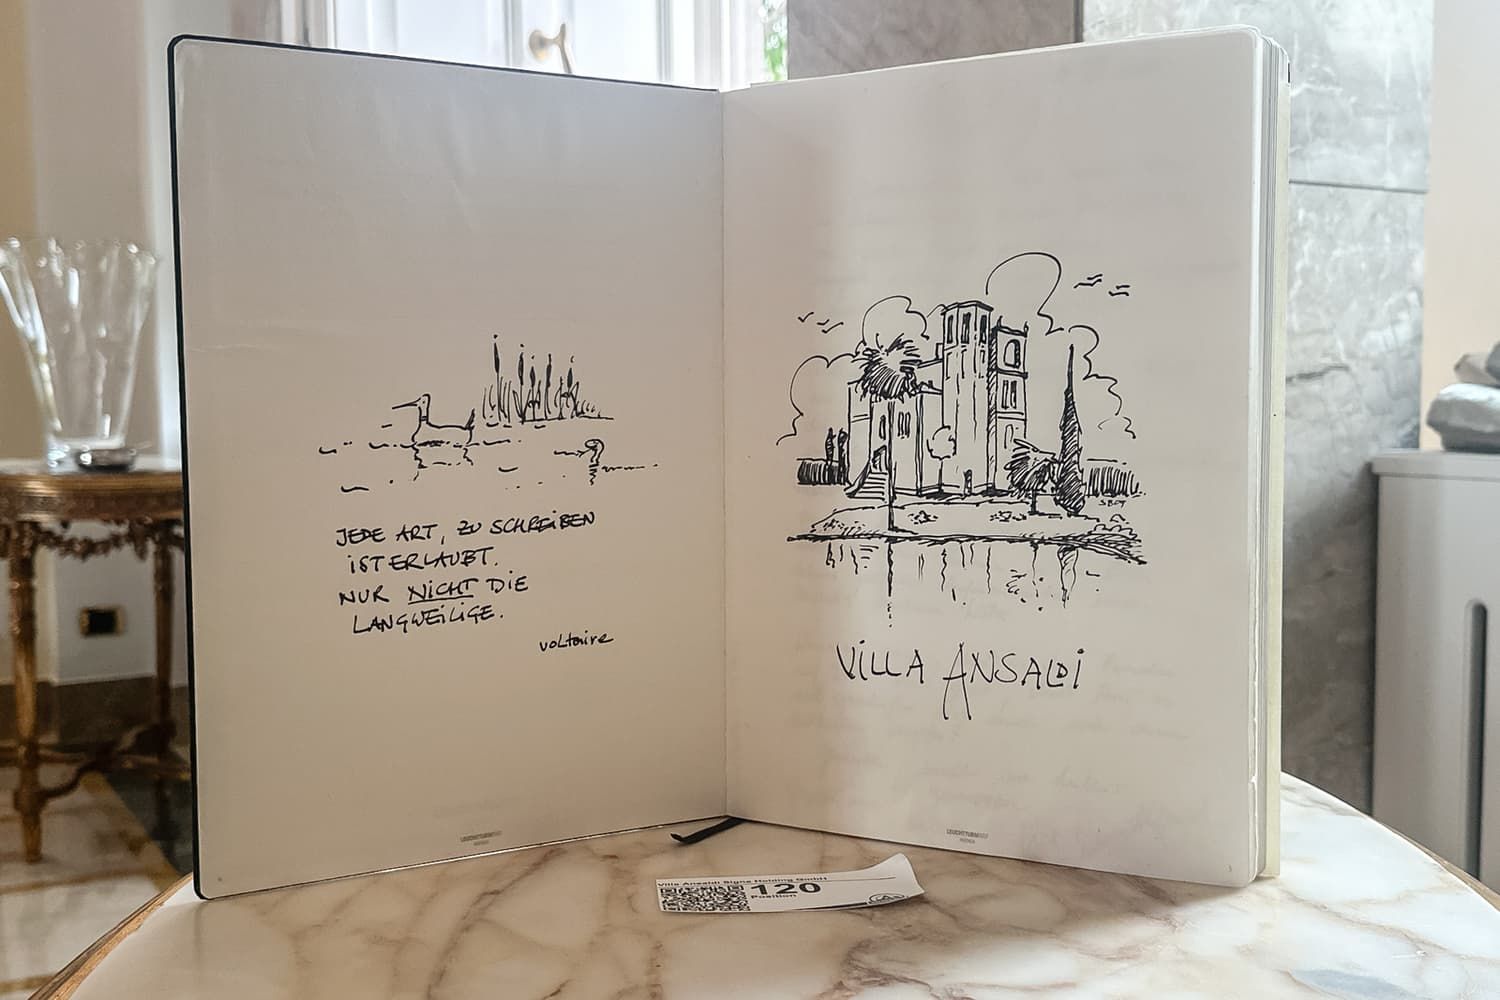 JEDE ART, ZU SCHREIBEN
iST ERLAUBT.
NUR NiCHT DiE
LANGWEiLiGE.
voLtaire
ViLLA ANSALDi
LEUCHTTURM1917
LEUCHTTURM1917
Villa Ansaldi Signa Holding GmbH
120
Position